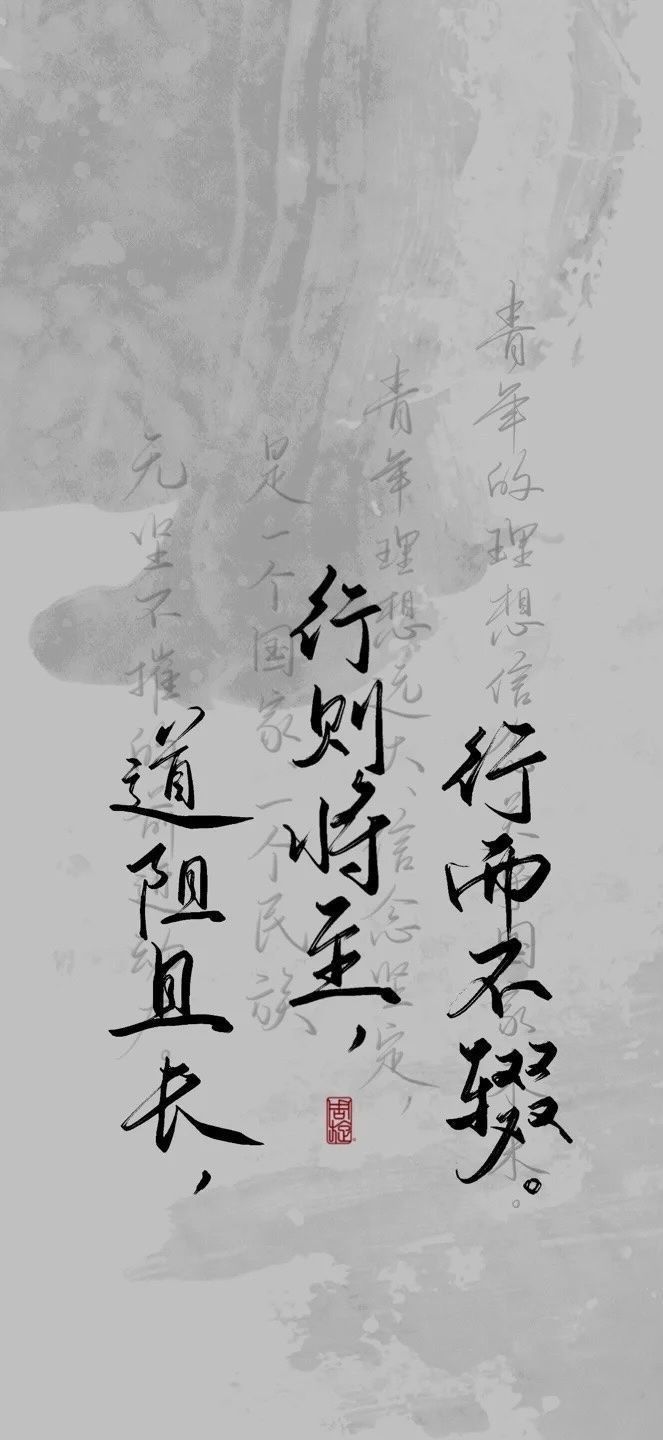 道阻且长，
行则将至，
行而不辍。
青年的理想信关乎国家未来。
青年理想远大、信念坚定，
是一个国家、一个民族
无坚不摧的前进动力。